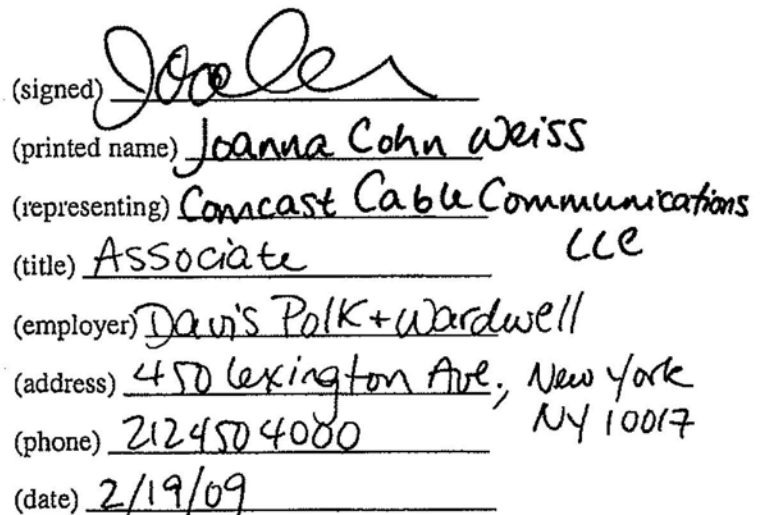 (signed)
(printed name) Joanna Cohn Weiss
(representing) Comcast Cable Communications
LLC
(title) Associate
(employer) Davis Polk + Wardwell
(address) 450 Lexington Ave., New York
NY 10017
(phone) 2124504000
(date) 2/19/09